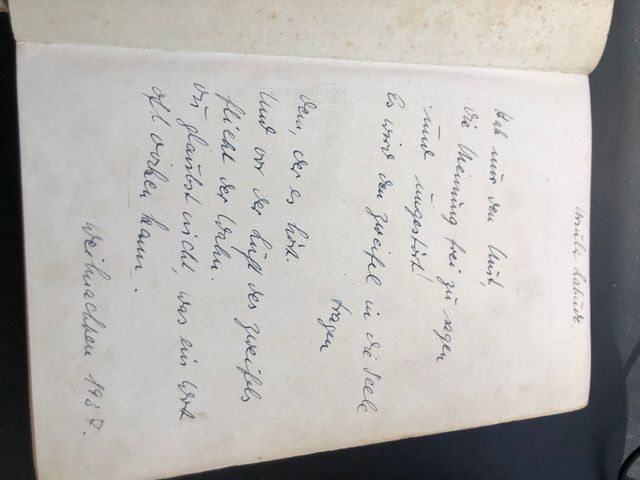 Hab nur den Mut,
die Meinung frei zu sagen
und ungestört!
Es wird den Zweifel in die Seele
tragen
dem, der es hört.
Und vor der Luft des Zweifels
flieht der Wahn.
Du glaubst nicht, was ein Wort
oft wirken kann.
Weihnachten 1937.